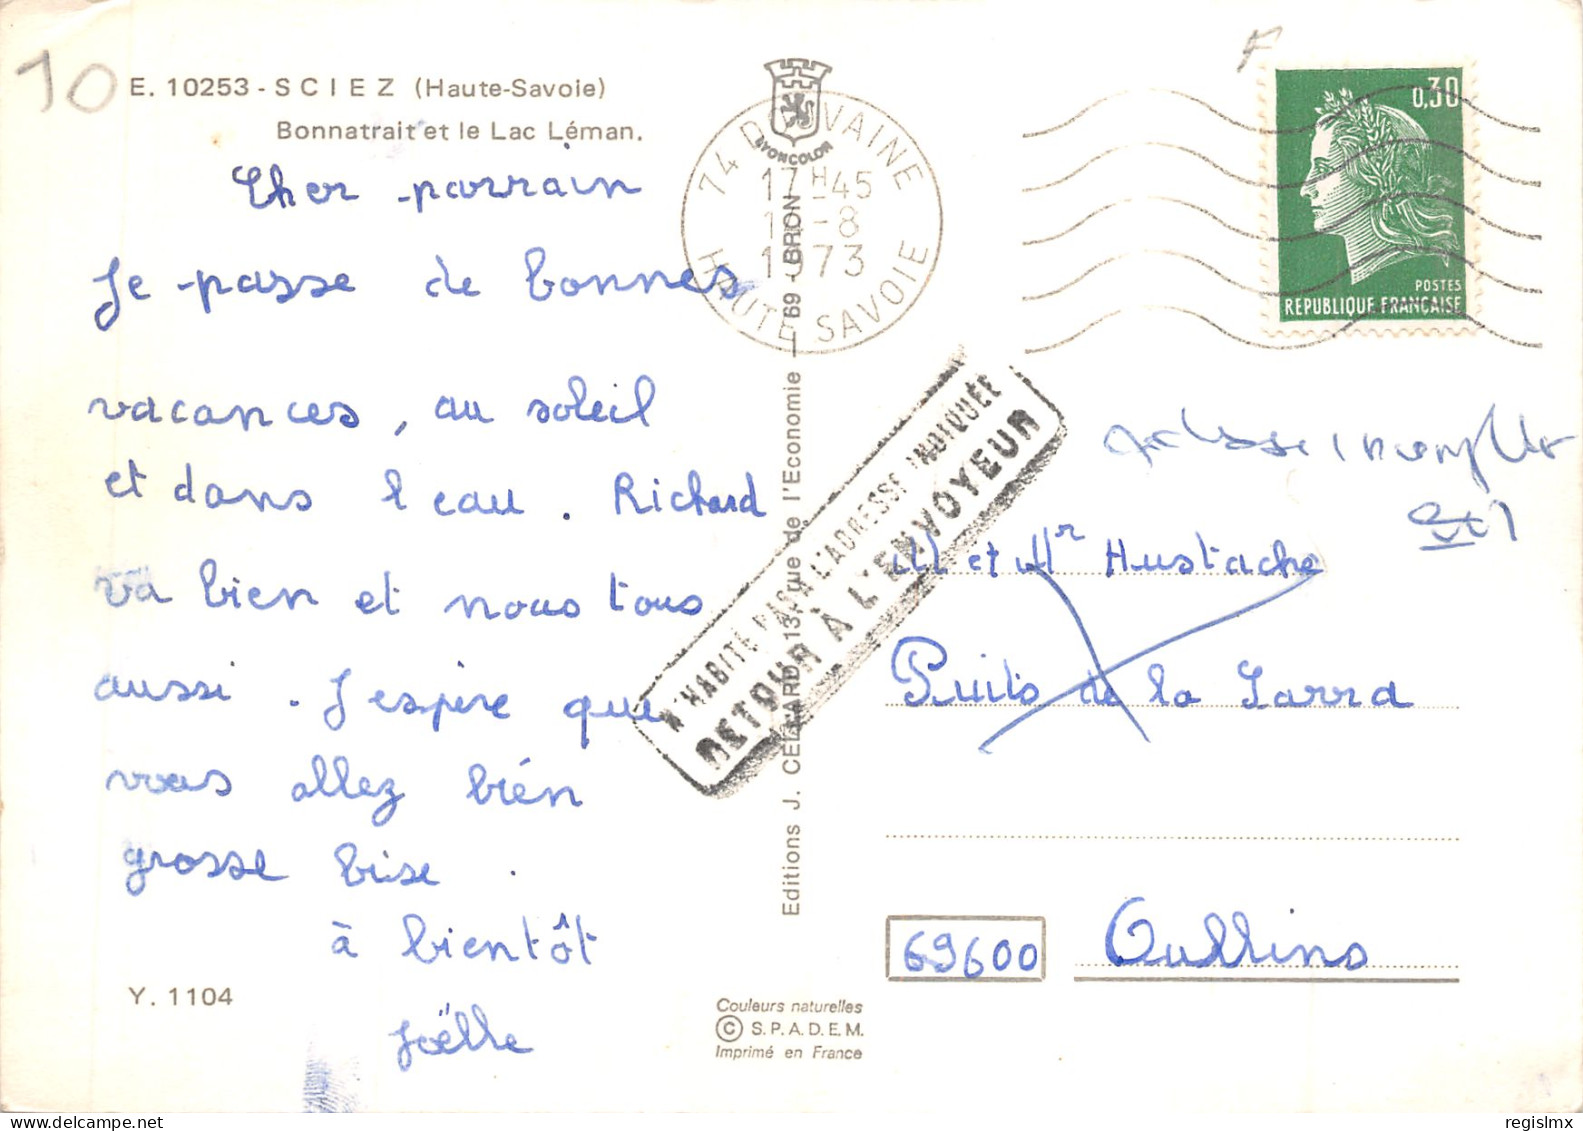 10
E. 10253 - SCIEZ (Haute-Savoie)
Bonnatrait et le Lac Léman.
Cher parrain
Je passe de bonnes
vacances, au soleil
et dans l'eau. Richard
va bien et nous tous
aussi. J'espère que
vous allez bién
grosse bise.
à bientôt
Joëlle
Y. 1104
LYONCOLOR
74 DOUVAINE
17H45
-8
1973
HAUTE SAVOIE
Editions J. CELLARD, 13, rue de l'Economie — 69 - BRON
Couleurs naturelles
© S.P.A.D.E.M.
Imprimé en France
N'HABITE PAS A L'ADRESSE INDIQUÉE
RETOUR À L'ENVOYEUR
0,30
POSTES
REPUBLIQUE FRANÇAISE
M et Mr Hustache
Puits de la Sarra
69600 Oullins
regislmx